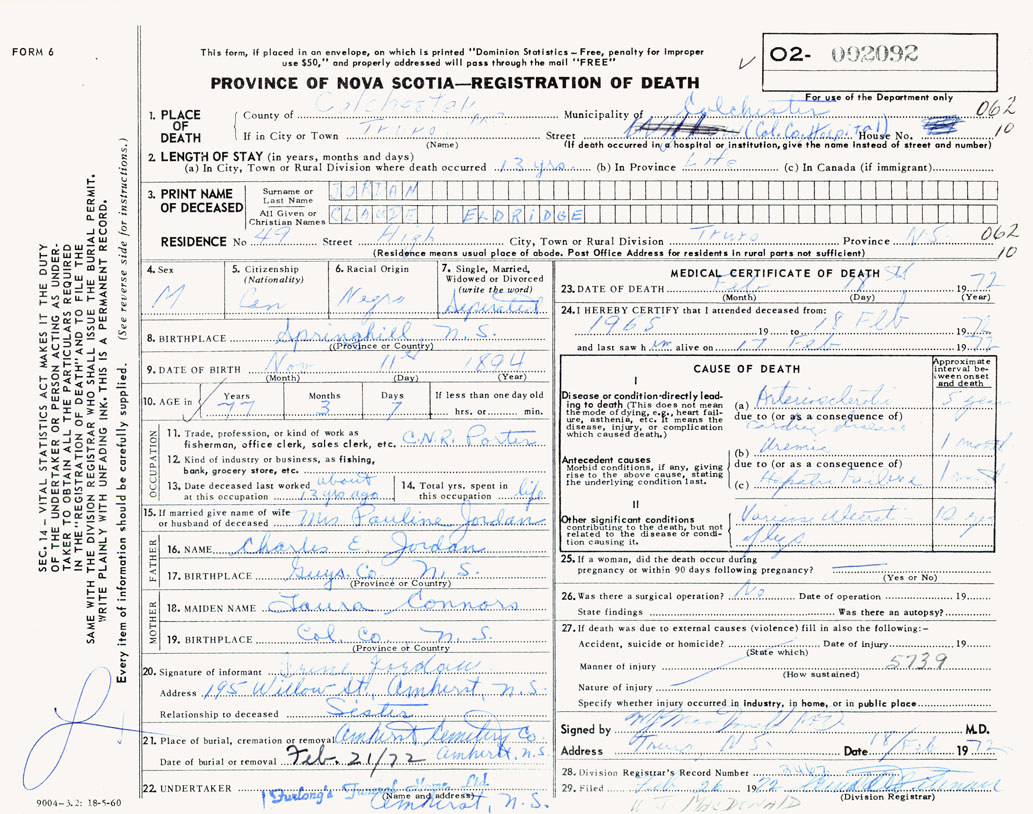 FORM 6
This form, if placed in an envelope, on which is printed "Dominion Statistics – Free, penalty for improper
use $50," and properly addressed will pass through the mail "FREE"
PROVINCE OF NOVA SCOTIA—REGISTRATION OF DEATH
O2- 002092
For use of the Department only
1. PLACE OF DEATH
County of Colchester Municipality of Colchester 062
If in City or Town Truro Street (Col. Co. Hospital) House No. 10
(Name) (If death occurred in a hospital or institution, give the name instead of street and number)
2. LENGTH OF STAY (in years, months and days)
(a) In City, Town or Rural Division where death occurred 13 yrs. (b) In Province Life (c) In Canada (if immigrant)
3. PRINT NAME OF DECEASED
Surname or Last Name JORDAN
All Given or Christian Names CLAUDE ELDRIDGE
RESIDENCE No 49 Street High City, Town or Rural Division Truro Province N.S. 062
(Residence means usual place of abode. Post Office Address for residents in rural parts not sufficient) 10
4. Sex
M
5. Citizenship
(Nationality)
Can
6. Racial Origin
Negro
7. Single, Married, Widowed or Divorced
(write the word)
Seperated
8. BIRTHPLACE Springhill N.S.
(Province or Country)
9. DATE OF BIRTH Nov 11th 1894
(Month) (Day) (Year)
10. AGE in Years Months Days If less than one day old
77 3 7 hrs. or min.
OCCUPATION
11. Trade, profession, or kind of work as
fisherman, office clerk, sales clerk, etc. C.N.R. Porter
12. Kind of industry or business, as fishing,
bank, grocery store, etc.
13. Date deceased last worked about
at this occupation 13 yrs ago
14. Total yrs. spent in
this occupation life
15. If married give name of wife
or husband of deceased Mrs Pauline Jordan
FATHER
16. NAME Charles E Jordan
17. BIRTHPLACE Guys. Co N.S.
(Province or Country)
MOTHER
18. MAIDEN NAME Laura Connors
19. BIRTHPLACE Col. Co. N.S.
(Province or Country)
20. Signature of informant Irene Jordan
Address 195 Willow St, Amherst N.S.
Relationship to deceased Sister
21. Place of burial, cremation or removal Amherst Cemetery Co.
Date of burial or removal Feb. 21/72 Amherst, N.S.
22. UNDERTAKER Furlong's Funeral Home Ltd.
(Name and address) Amherst, N.S.
MEDICAL CERTIFICATE OF DEATH
23. DATE OF DEATH Feb 18th 1972
(Month) (Day) (Year)
24. I HEREBY CERTIFY that I attended deceased from:
1965 19 to 18 Feb 1972
and last saw him alive on 17 Feb 1972
CAUSE OF DEATH
Approximate interval between onset and death
I
Disease or condition directly leading to death (This does not mean the mode of dying, e.g., heart failure, asthenia, etc. It means the disease, injury, or complication which caused death.)
(a) Arteriosclerotic 5 years
due to (or as a consequence of)
Cardiac Disease
(b) Uremia 1 month
Antecedent causes
Morbid conditions, if any, giving rise to the above cause, stating the underlying condition last.
due to (or as a consequence of)
(c) Hepatic Failure 1 mont.
II
Other significant conditions contributing to the death, but not related to the disease or condition causing it.
of legs
25. If a woman, did the death occur during
pregnancy or within 90 days following pregnancy?
(Yes or No)
26. Was there a surgical operation? No Date of operation 19
State findings Was there an autopsy?
27. If death was due to external causes (violence) fill in also the following:–
Accident, suicide or homicide? Date of injury 19
(State which)
Manner of injury 5739
(How sustained)
Nature of injury
Specify whether injury occurred in industry, in home, or in public place
Signed by M.D.
Address Truro N.S. Date 18/Feb 1972
28. Division Registrar's Record Number
29. Filed Feb 26 1972
(Division Registrar)
W. J. MACDONALD
SEC. 14 – VITAL STATISTICS ACT MAKES IT THE DUTY
OF THE UNDERTAKER OR PERSON ACTING AS UNDER-
TAKER TO OBTAIN ALL THE PARTICULARS REQUIRED
IN THE "REGISTRATION OF DEATH" AND TO FILE THE
SAME WITH THE DIVISION REGISTRAR WHO SHALL ISSUE THE BURIAL PERMIT.
WRITE PLAINLY WITH UNFADING INK. THIS IS A PERMANENT RECORD.
Every item of information should be carefully supplied. (See reverse side for instructions.)
9004–3.2: 18-5-60